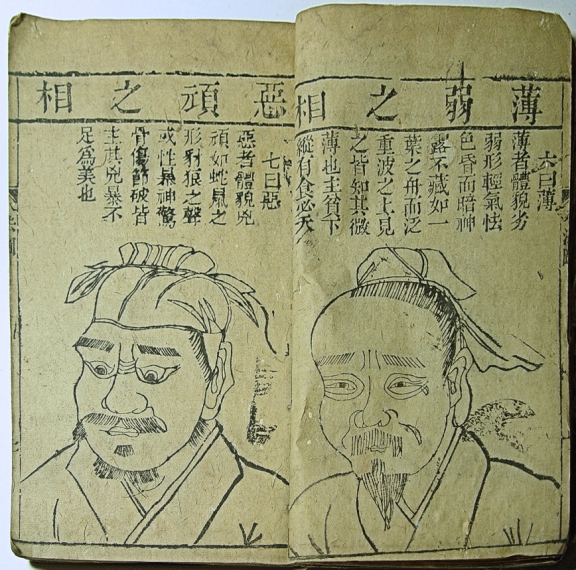 薄弱之相
六曰薄
薄者體貌劣
弱形輕氣怯
色昏而暗神
露不藏如一
葉之舟而泛
重波之上見
之皆知其微
薄也主貧下
縱有食必夭
惡頑之相
七曰惡
惡者體貌兇
頑如蛇鼠之
形豺狼之聲
或性暴神驚
骨傷節破皆
主其兇暴不
足為美也